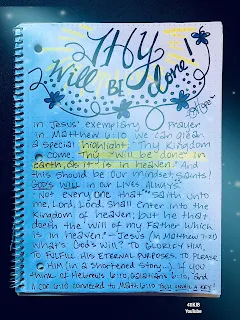 THY
Will BE done!
in Jesus' exemplary prayer
in Matthew 6:10, we can glean
a special highlight: "Thy Kingdom
come. Thy will be done in
earth, as it is in heaven." And
this should be our mindset, Saints!
GOD'S Will in our lives, ALWAYS.
"Not every one that saith unto
me, Lord, Lord, shall enter into the
Kingdom of heaven; but he that
doeth the will of my Father which
is in heaven." -Jesus (in Matthew 7:21)
What's God's Will? To GLORIFY HIM,
TO FULFILL HIS ETERNAL PURPOSES, TO PLEASE
HIM (in a shortened story...) If you
think of Hebrews 6:10, Galatians 6:10, and
1 Cor 6:10 connected to Math 6:10
4HIJB
YouTube